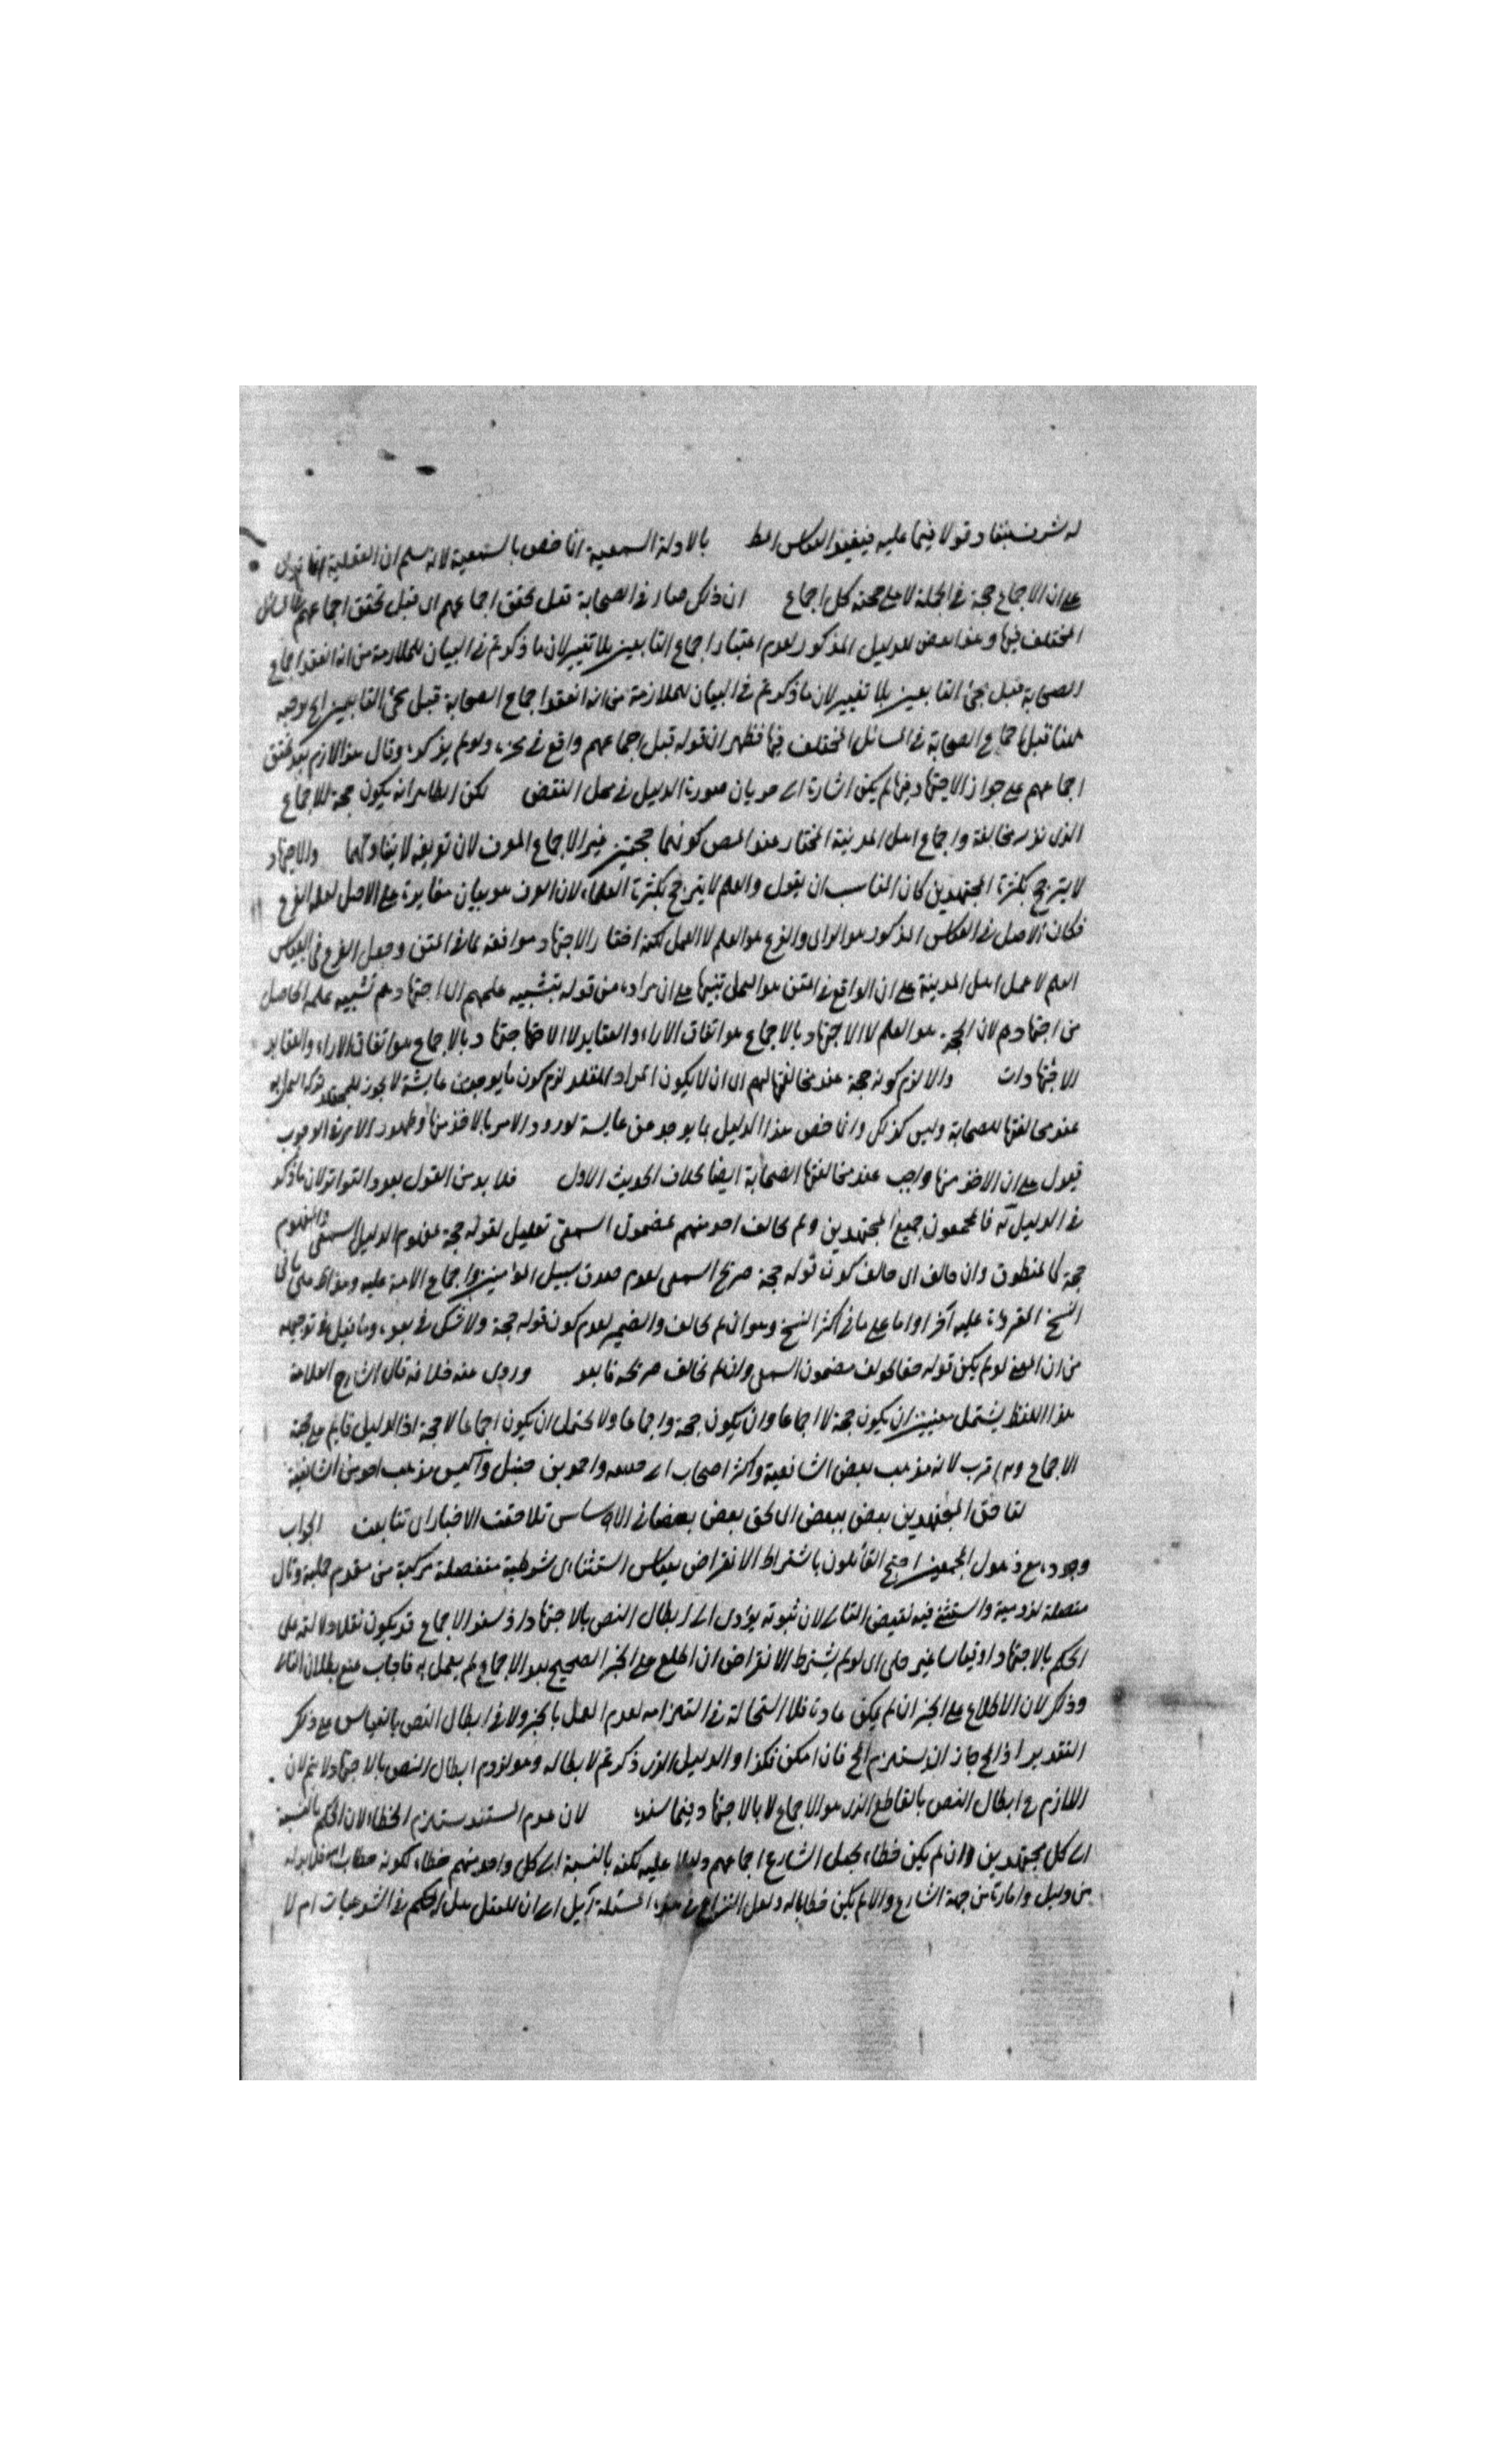 بالادلة السمعية انما خص بالسمعية لانه سلم ان العقلية انما تدل
على ان الاجماع حجة في الجملة لا على حجية كل اجماع ان ذلك صار في الصحابة قبل تحقق اجماعهم اى قبل تحقق اجماعهم
المختلف فيها وهذا بعض الدليل المذكور لعدم اعتبار اجماع التابعين بلا تغيير لان ما ذكرتم في البيان للملازمة من انه انعقد اجماع
الصحابة قبل مجئ التابعين بلا تغيير لان ما ذكرتم في البيان للملازمة من انه انعقد اجماع الصحابة قبل مجئ التابعين الخ يوجد
هنا قبل اجماع الصحابة في المسائل المختلف فيها فظهر ان قوله قبل اجماعهم واقع في ولو لم يذكره وقال هذا لازم
اجماعهم على جواز الاجتهاد فيها لم يكن اشارة الى جريان صورة الدليل في محل النقض لكن الظاهر انه يكون حجة للاجماع
الذى ندر مخالفه واجماع اهل المدينة المختار عند المص كونهما حجتين غير الاجماع المعرف لان تعريفه لا يتناولهما والاجتهاد
لا يترجح بكثرة المجتهدين كان المناسب ان يقول والعلم لا يترجح بكثرة العلماء لان
فكان الاصل في العكس المذكور هو الراى والفرع هو العلم لا العمل لكنه اختار الاجتهاد موافقة لما في المتن وجعل الفرع في العكس
العلم لا عمل اهل المدينة على ان الواقع في المتن هو العمل تنبيها على ان مراده من قوله بتشبيه علمهم الى اجتهادهم تشبيه علمه الحاصل
من اجتهادهم لان الحجة هو العلم لا الاجتهاد بالاجماع هو اتفاق الاراء والعقايد لا بالاجماع هو اتفاق الاراء والعقايد
الاجتهادات والا لزم كونه حجة عند مخالفتها لهم اى ان لا يكون المراد المقلد لزم كون ما يوجد من عايشة لا يجوز للمجتهد ترك العمل به
عند مخالفتها للصحابة وليس كذلك وانما خص هذا الدليل بما يوجد من عايشة لورود الامر بالاخذ منها وظهور الامر في الوجوب
فيدل على ان الاخذ منها واجب عند مخالفتها الصحابة ايضا بخلاف الحديث الاول فلا بد من القول بعدد التواتر لان ما ذكر
في الدليل فالمجمعون جميع المجتهدين ولم يخالف احد منهم مضمون السمعى تعليل لقوله حجة مفهوم الدليل السمعى والمفهوم
حجة كالمنطوق وان خالف اى خالف كون قوله حجة صريح السمعى لعدم صدق سبيل المؤمنين واجماع الامة عليه وهذا على ما في
النسخ المقروءة عليه آخرا واما على ما في اكثر النسخ وهو ان لم يخالف والضمير لعدم كون قوله حجة ولا شك في بعده وما قيل في توجيهه
من ان المعنى لو لم يكن قوله حقا لخولف مضمون السمعى وان لم نخالف صريحه فابعد وروى عنه خلافه قال الشارح العلامة
هذا اللفظ يشتمل معنيين ان يكون حجة لا اجماعا وان يكون حجة واجماعا ولا يحتمل ان يكون اجماعا لا حجة اذ الدليل قايم على حجية
الاجماع وهو اقرب لانه مذهب بعض الشافعية واكثر اصحاب ابى حنيفة واحمد بن حنبل والعكس مذهب احد من الشافعية
لتلاحق المجتهدين بعض ببعض اى لحق بعض بعضا في الاساس تلاحقت الاخبار اى تتابعت الجواب
وجوده مع ذهول المجمعين احتج القائلون باشتراط الانقراض بعكس استثناء اى شرطية منفصلة مركبة من مقدم حملية وتال
متصلة لزومية واستثنى فيه نقيض التالى لان ثبوته يؤدى الى ابطال النص بالاجتهاد اذ سند الاجماع قد يكون نقلا دلالته على
الحكم بالاجتهاد او قياسا غير جلى اى لو لم يشترط الانقراض ان اطلع على الخبر الصحيح بعد الاجماع لم يعمل به فاجاب منع بطلان التالى
وذلك لان الاطلاع على الخبر ان لم يكن عادة فلا استحالة في استلزامه لعدم العمل بالخبر ولا في ابطال النص بالقياس على ذلك
التقدير اذ المح جاز ان يستلزم المح فان امكن فكذا والدليل الذى ذكرتم لابطاله وهو لزوم ابطال النص بالاجتهاد لا يتم لان
اللازم هو ابطال النص بالقاطع الذى هو الاجماع لا بالاجتهاد فيما سنده لان عدم المستند يستلزم الخطاء لان الحكم بالنسبة
الى كل مجتهدين وان لم يكن خطاء بجعل الشارع اجماعهم دليلا عليه لكنه بالنسبة الى كل واحد منهم خطاء لكونه
من دليل وامارة من جهة الشارع والا لم يكن خطابا له ولعل النزاع في هذه المسئلة آيل الى ان للعقل هل الحكم في الشرعيات ام لا